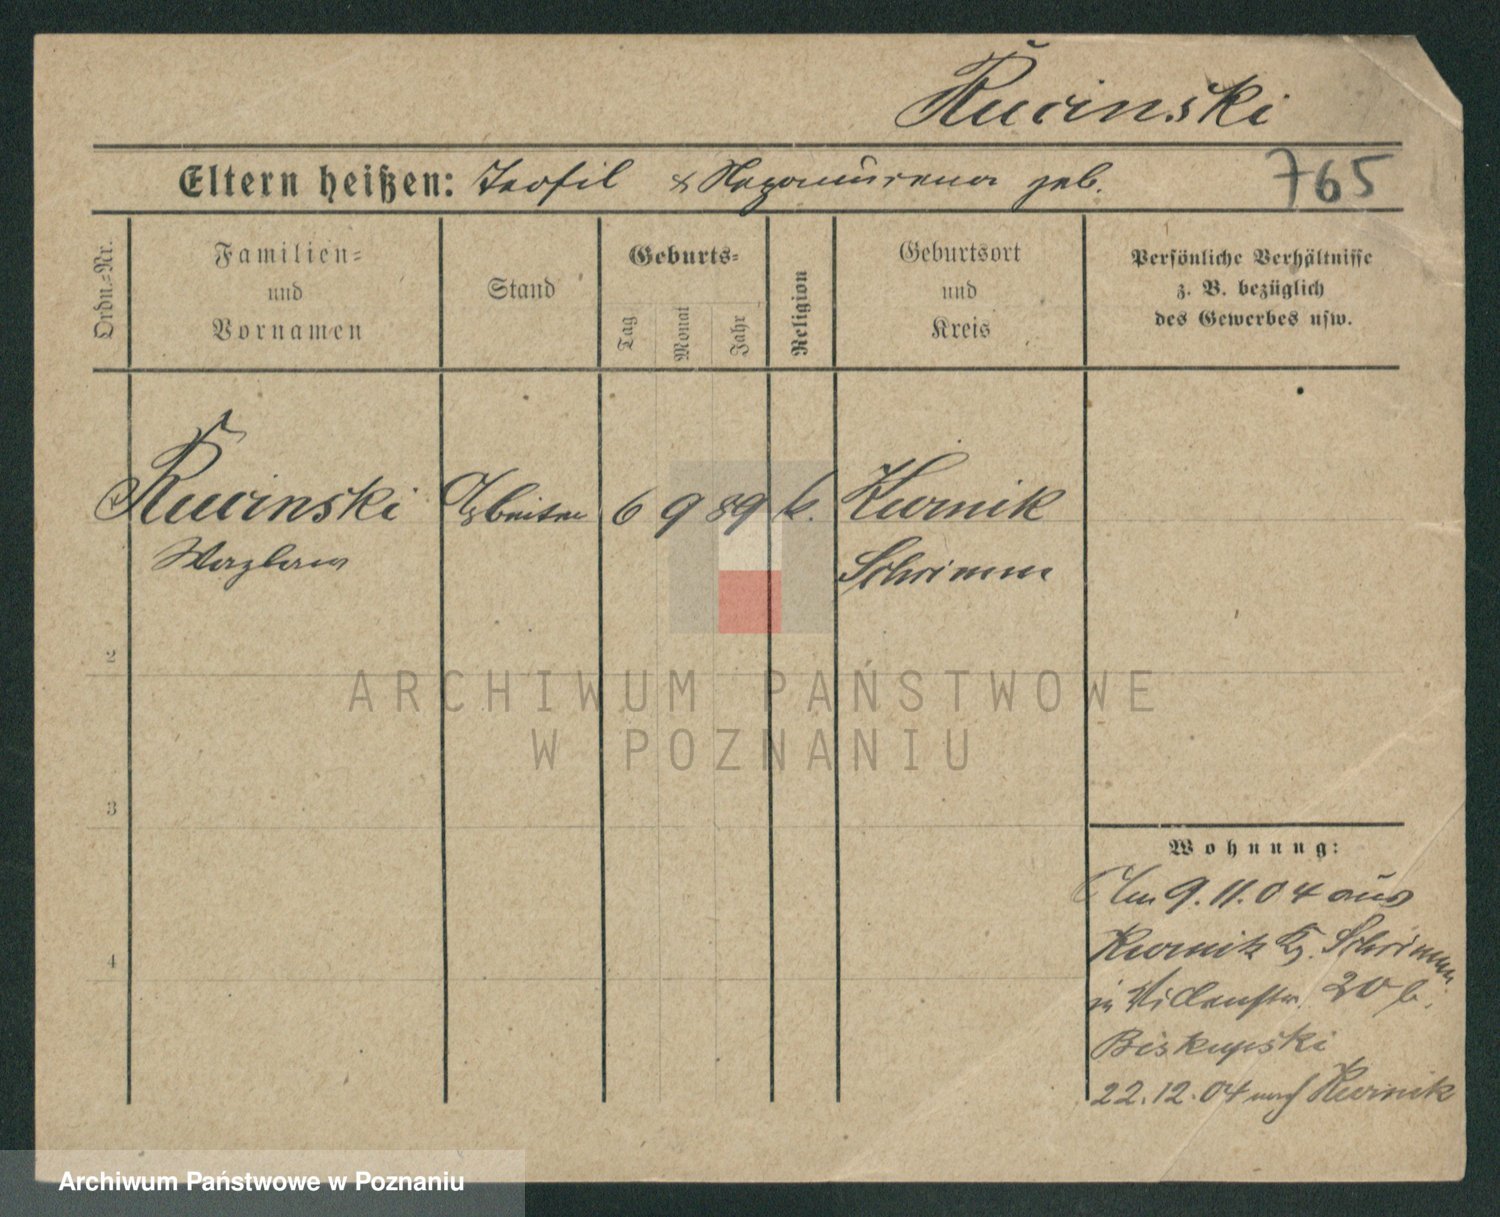 Rucinski
Eltern heißen: Teofil & Nepomucena geb. 765
Ordn.-Nr.
Familien- und Vornamen
Stand
Geburts-
Tag
Monat
Jahr
Religion
Geburtsort und Kreis
Persönliche Verhältnisse
z. B. bezüglich
des Gewerbes usw.
Rucinski Arbeiter 6 9 89 k. Kurnik
Wazlaw Schrimm
2
3
4
Wohnung:
Am 9.11.04 aus
Kurnik Kr. Schrimm
in Villenstr. 20 b.
Biskupski
22.12.04 nach Kurnik
ARCHIWUM PAŃSTWOWE
W POZNANIU
Archiwum Państwowe w Poznaniu